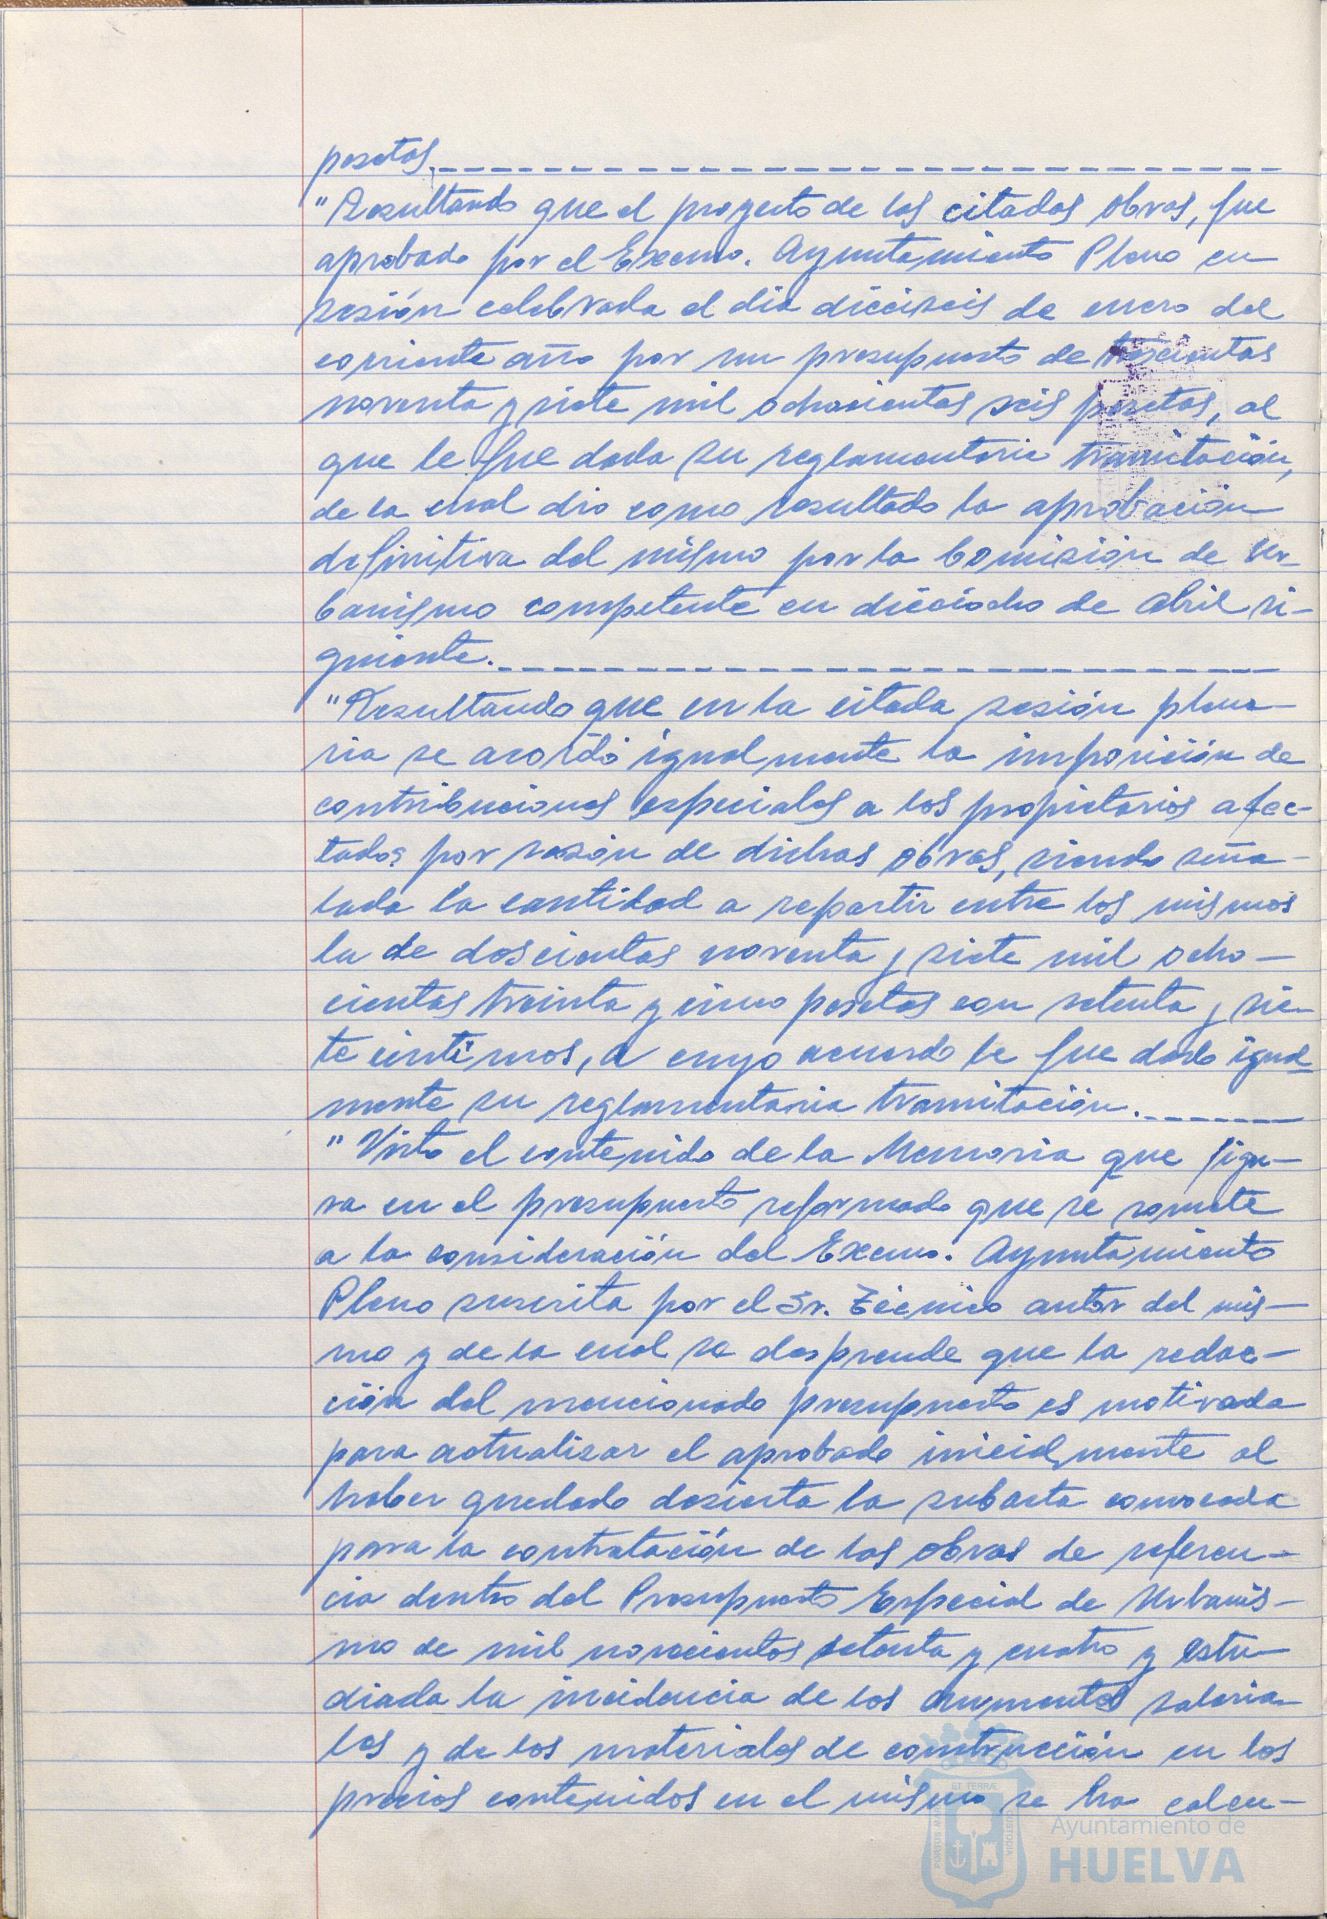 pesetas.
"Resultando que el proyecto de las citadas obras, fue
aprobado por el Excmo. Ayuntamiento Pleno en
sesión celebrada el dia dieciseis de enero del
corriente año por un presupuesto de trescientas
noventa y siete mil ochocientas seis pesetas, al
que le fue dada su reglamentaria tramitación,
de la cual dio como resultado la aprobación
definitiva del mismo por la Comisión de Ur-
banismo competente en dieciocho de abril si-
guiente.
"Resultando que en la citada sesión plena-
ria se acordó igualmente la imposición de
contribuciones especiales a los propietarios afec-
tados por razón de dichas obras, siendo seña-
lada la cantidad a repartir entre los mismos
la de doscientas noventa y siete mil ocho-
cientas treinta y cinco pesetas con setenta y sie-
te céntimos, a cuyo acuerdo le fue dado igual-
mente su reglamentaria tramitación.
"Visto el contenido de la Memoria que figu-
ra en el presupuesto reformado que se somete
a la consideración del Excmo. Ayuntamiento
Pleno suscrita por el Sr. Técnico autor del mis-
mo y de la cual se desprende que la redac-
ción del mencionado presupuesto es motivada
para actualizar el aprobado inicialmente al
haber quedado desierta la subasta convocada
para la contratación de las obras de referen-
cia dentro del Presupuesto Especial de Urbanis-
mo de mil novecientos setenta y cuatro y estu-
diada la incidencia de los aumentos salaria-
les y de los materiales de construcción en los
precios contenidos en el mismo se ha calcu-
Ayuntamiento de
HUELVA